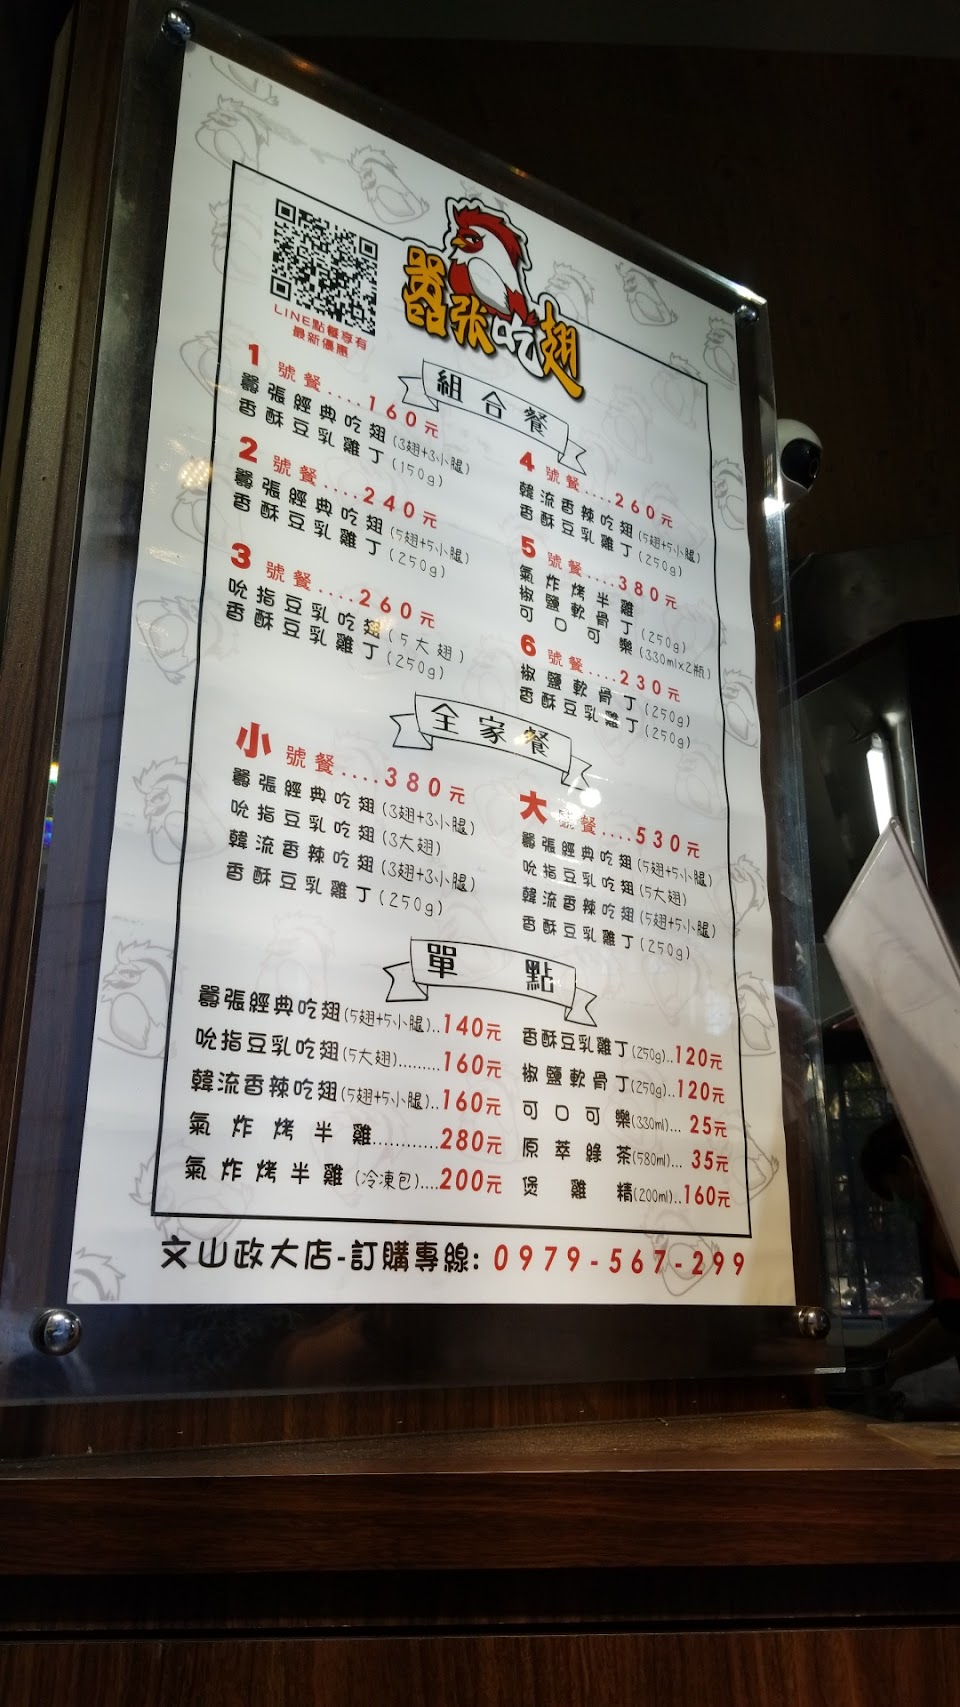 囂張吃翅
LINE點餐享有
最新優惠
組合餐
1號餐....160元
囂張經典吃翅(3翅+3小腿)
香酥豆乳雞丁(150g)
2號餐....240元
囂張經典吃翅(5翅+5小腿)
香酥豆乳雞丁(250g)
3號餐....260元
吮指豆乳吃翅(5大翅)
香酥豆乳雞丁(250g)
4號餐....260元
韓流香辣吃翅(5翅+5小腿)
香酥豆乳雞丁(250g)
5號餐....380元
氣炸烤半雞
椒鹽軟骨丁(250g)
可口可樂(330mlx2瓶)
6號餐....230元
椒鹽軟骨丁(250g)
香酥豆乳雞丁(250g)
全家餐
小號餐....380元
囂張經典吃翅(3翅+3小腿)
吮指豆乳吃翅(3大翅)
韓流香辣吃翅(3翅+3小腿)
香酥豆乳雞丁(250g)
大號餐....530元
囂張經典吃翅(5翅+5小腿)
吮指豆乳吃翅(5大翅)
韓流香辣吃翅(5翅+5小腿)
香酥豆乳雞丁(250g)
單點
囂張經典吃翅(5翅+5小腿)..140元
吮指豆乳吃翅(5大翅).........160元
韓流香辣吃翅(5翅+5小腿)..160元
氣炸烤半雞............280元
氣炸烤半雞(冷凍包)....200元
香酥豆乳雞丁(250g)..120元
椒鹽軟骨丁(250g)..120元
可口可樂(330ml)...25元
原萃綠茶(580ml)...35元
煲雞精(200ml)..160元
文山政大店-訂購專線:0979-567-299